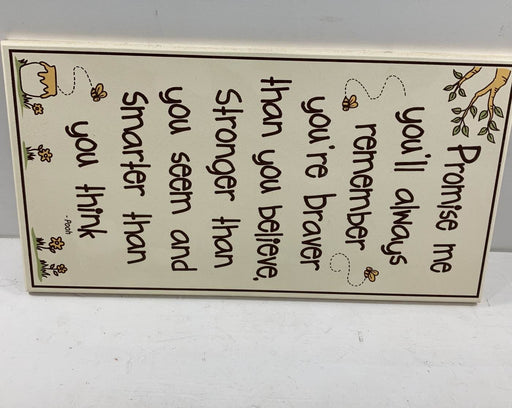 Promise me
you'll always
remember
you're braver
than you believe,
Stronger than
you seem and
Smarter than
you think
- Pooh